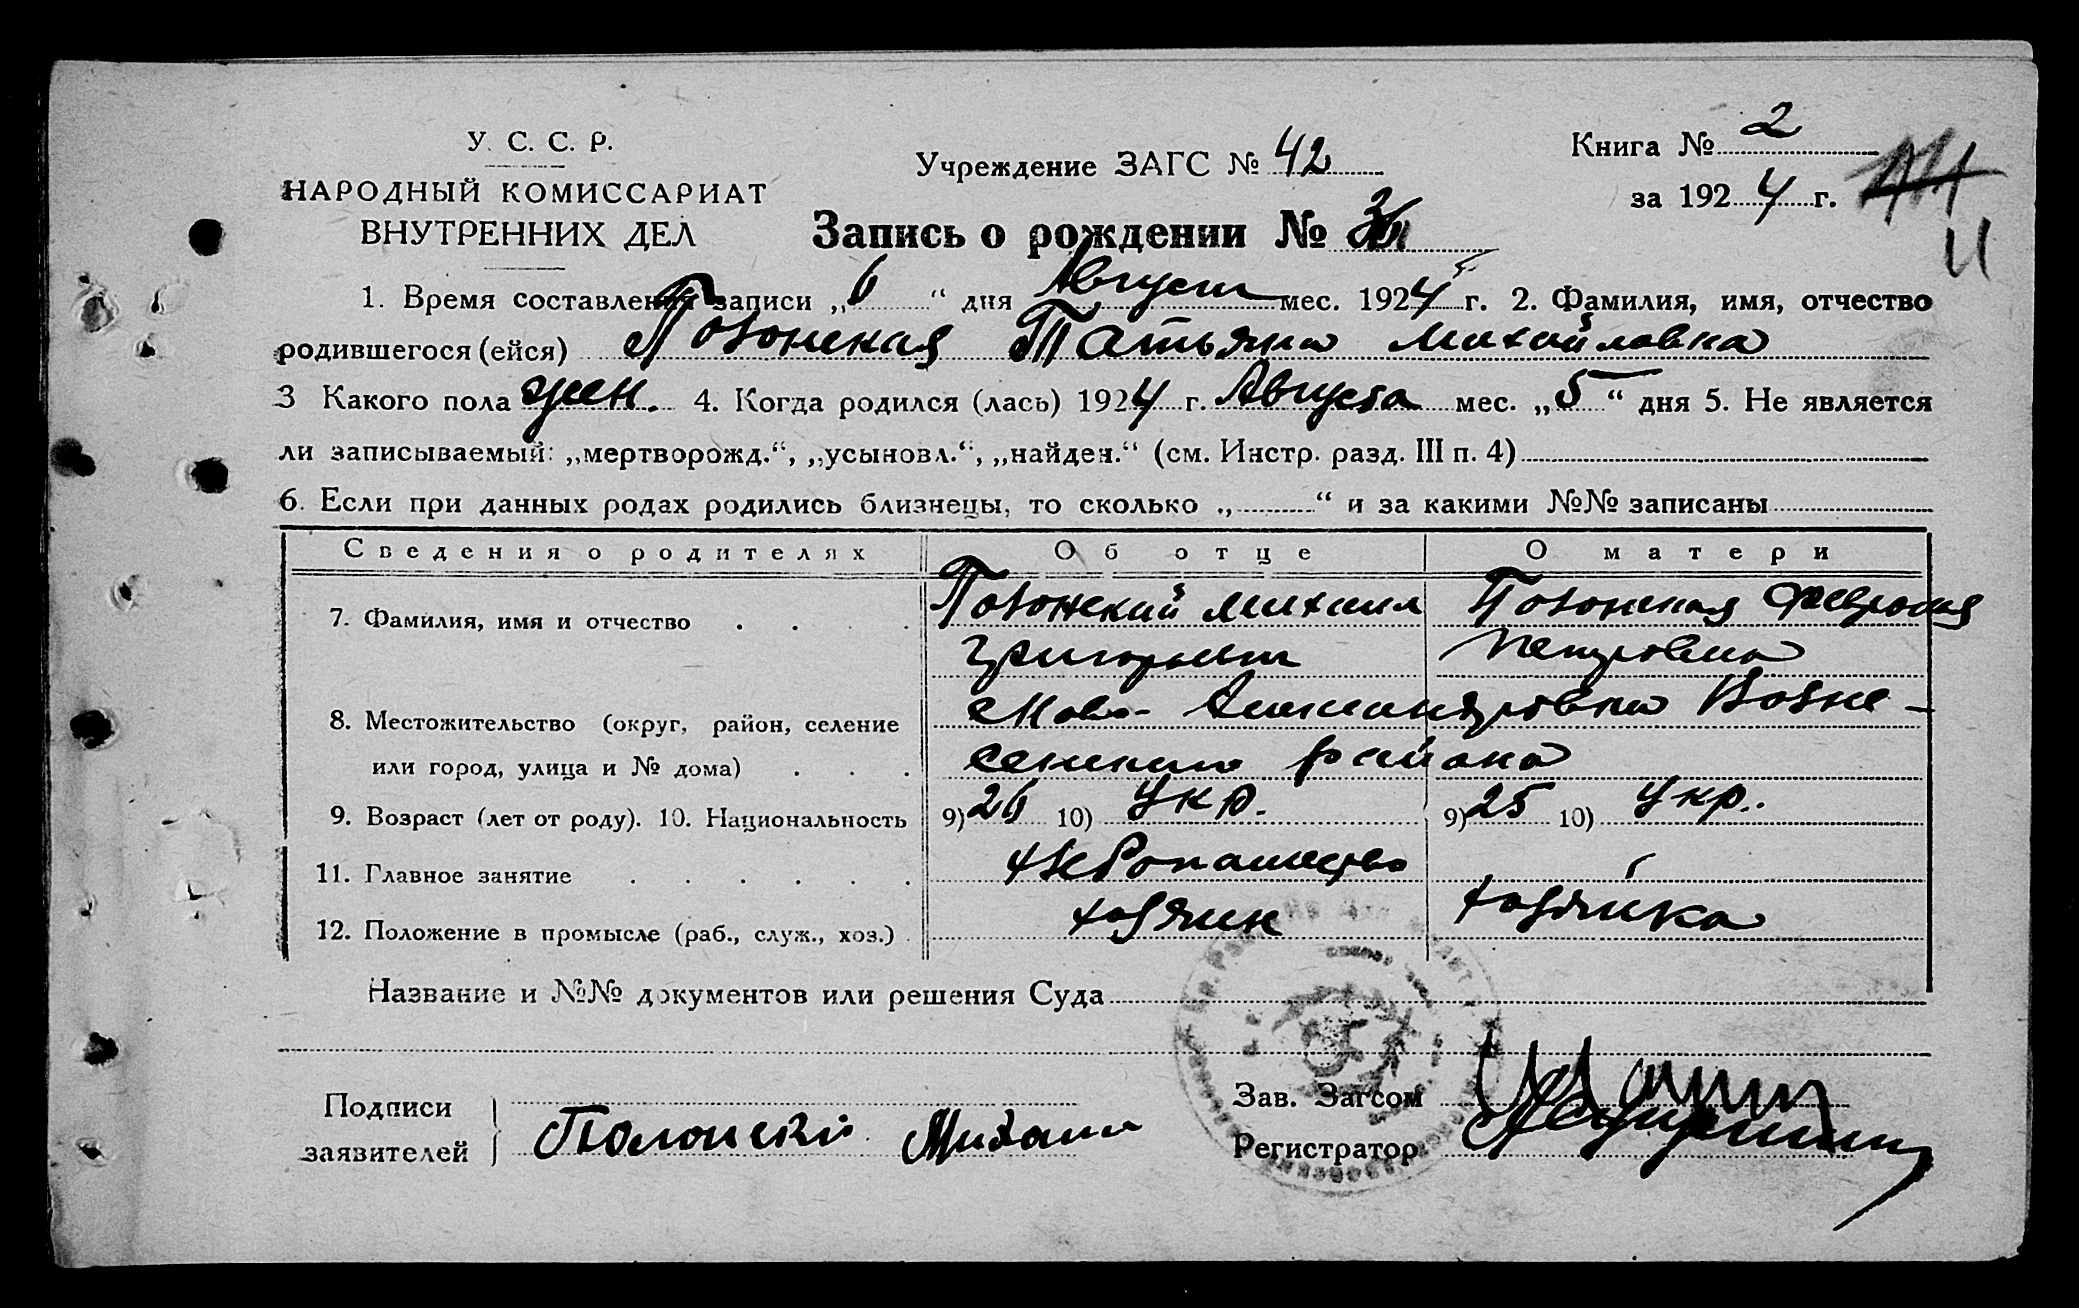 У. С. С. Р.
НАРОДНЫЙ КОМИССАРИАТ
ВНУТРЕННИХ ДЕЛ
Учреждение ЗАГС № 42
Книга № 2
за 1924 г.
Запись о рождении №
1. Время составления записи „6“ дня Август мес. 1924 г. 2. Фамилия, имя, отчество
родившегося (ейся) Татьяна Михайловна
3 Какого пола жен. 4. Когда родился (лась) 1924 г. Августа мес. „5“ дня 5. Не является
ли записываемый: „мертворожд.“, „усыновл.“, „найден.“ (см. Инстр. разд. III п. 4)
6. Если при данных родах родились близнецы, то сколько „ “ и за какими №№ записаны
Сведения о родителях Об отце О матери
7. Фамилия, имя и отчество Михаил
Петровна
8. Местожительство (округ, район, селение
или город, улица и № дома) района
9. Возраст (лет от роду). 10. Национальность 9) 26 10) Укр. 9) 25 10) Укр.
11. Главное занятие Хлебопашество
12. Положение в промысле (раб., служ., хоз.) хозяин хозяйка
Название и №№ документов или решения Суда
Подписи
заявителей
Полонский Михаил
Зав. Загсом
Регистратор